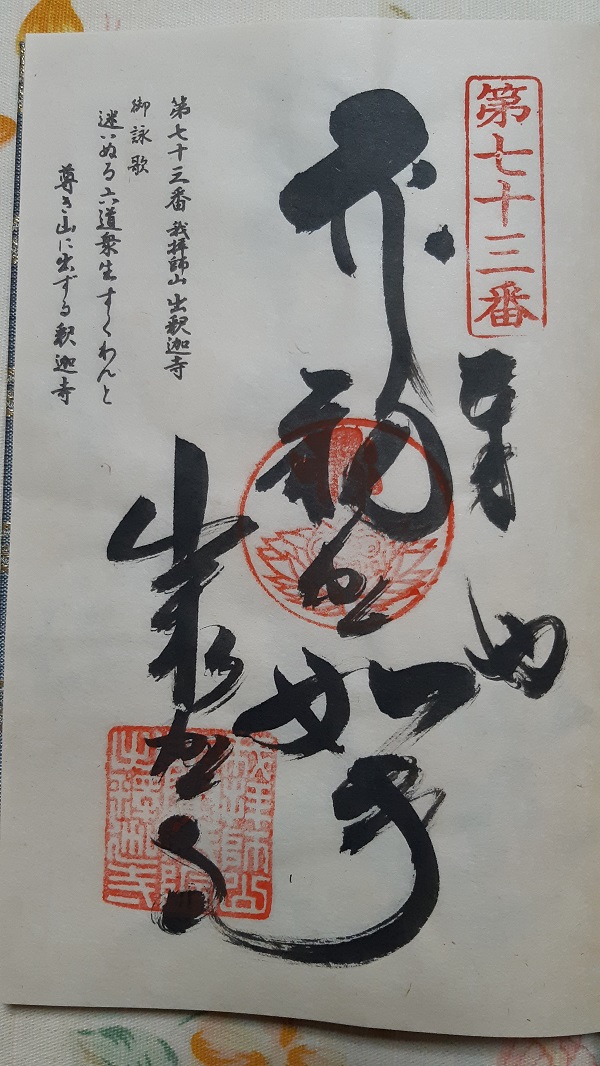 第七十三番
奉
釈迦如来
出釈迦寺
第七十三番 我拝師山 出釈迦寺
御詠歌
迷いぬる六道衆生すくわんと
尊き山に出ずる釈迦寺
我拝師山
出釈迦寺